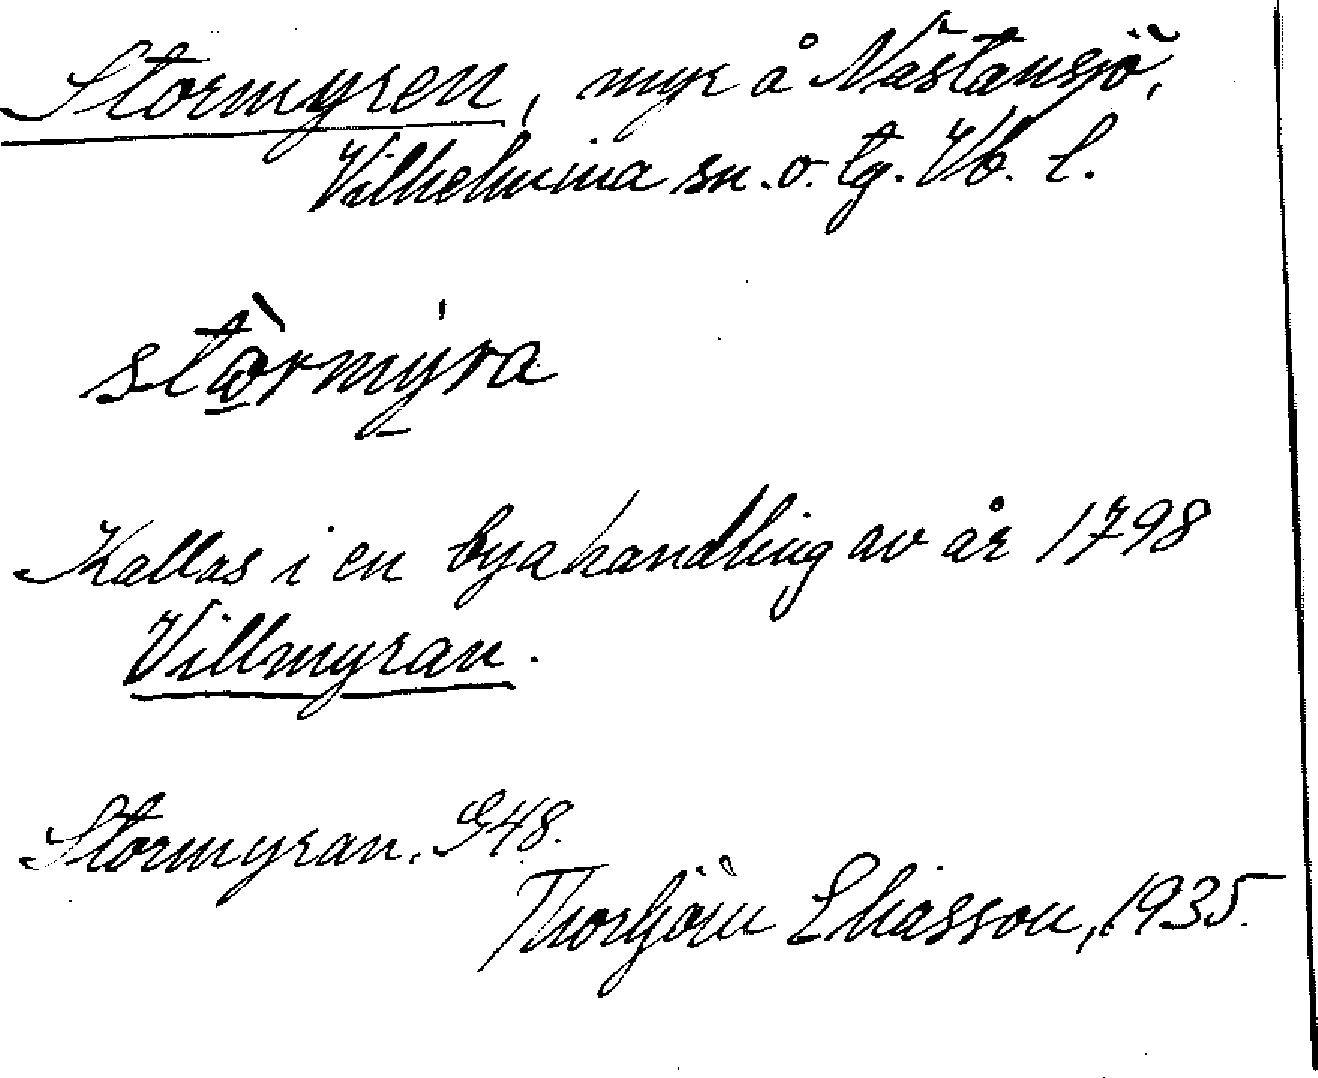 Stormyren, myr å Nästansjö,
Vilhelmina sn. o. tg. Vb. l.
stòrmýra
Kallas i en byahandling av år 1798
Villmyran.
Stormyran. G48.
Thorbjörn Eliasson, 1935.